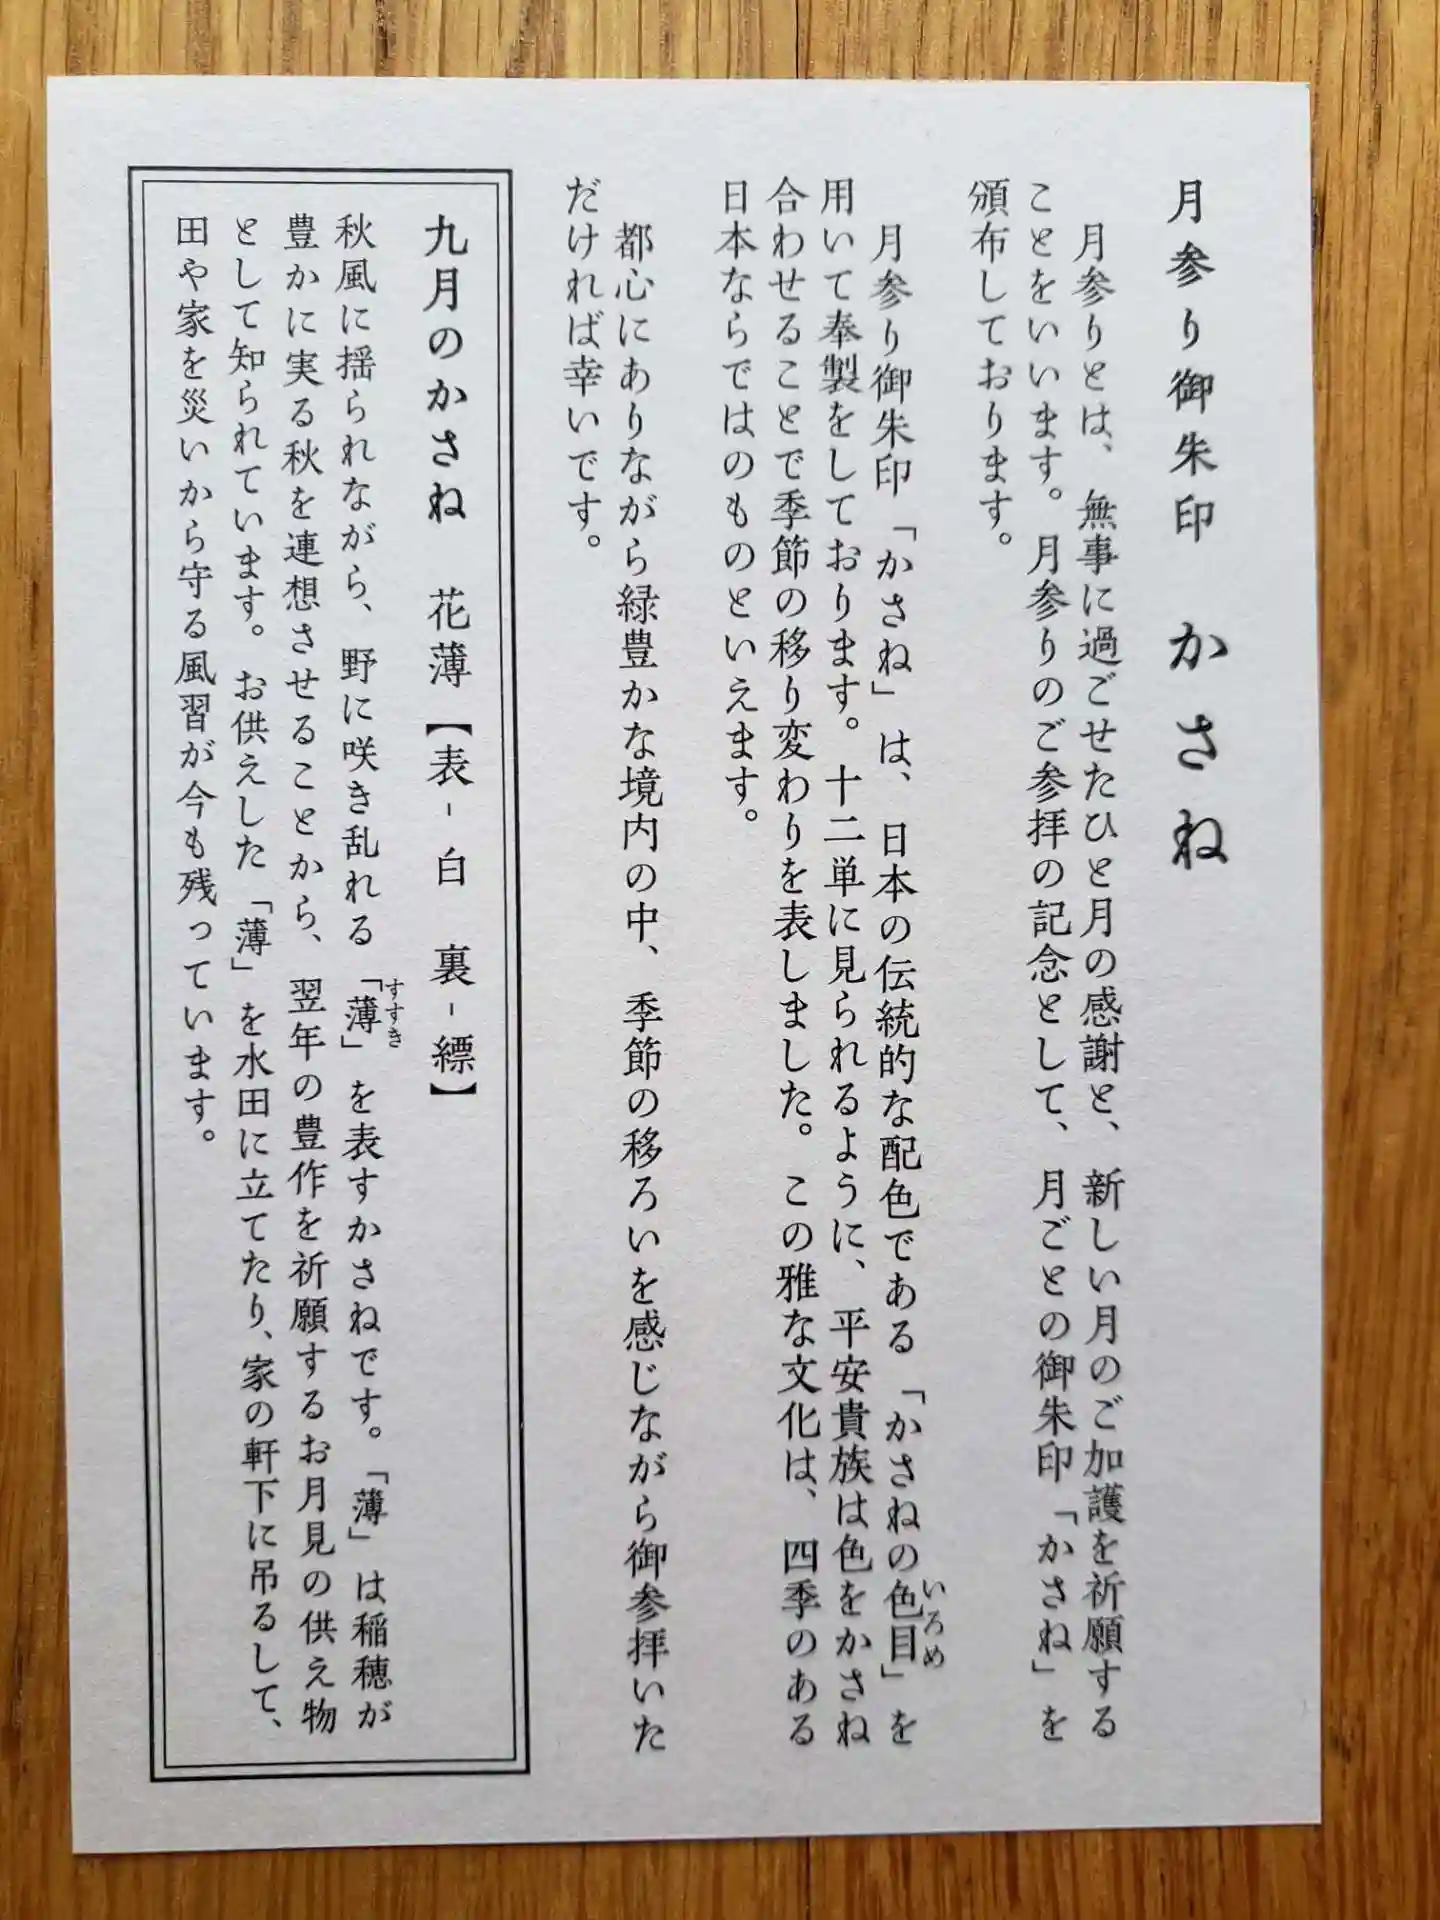 月参り御朱印　かさね
月参りとは、無事に過ごせたひと月の感謝と、新しい月のご加護を祈願する
ことをいいます。月参りのご参拝の記念として、月ごとの御朱印「かさね」を
頒布しております。
月参り御朱印「かさね」は、日本の伝統的な配色である「かさねの色目」を
いろめ
用いて奉製をしております。十二単に見られるように、平安貴族は色をかさね
合わせることで季節の移り変わりを表しました。この雅な文化は、四季のある
日本ならではのものといえます。
都心にありながら緑豊かな境内の中、季節の移ろいを感じながら御参拝いた
だければ幸いです。
九月のかさね　花薄【表-白　裏-縹】
秋風に揺られながら、野に咲き乱れる「薄」を表すかさねです。「薄」は稲穂が
すすき
豊かに実る秋を連想させることから、翌年の豊作を祈願するお月見の供え物
として知られています。お供えした「薄」を水田に立てたり、家の軒下に吊るして、
田や家を災いから守る風習が今も残っています。